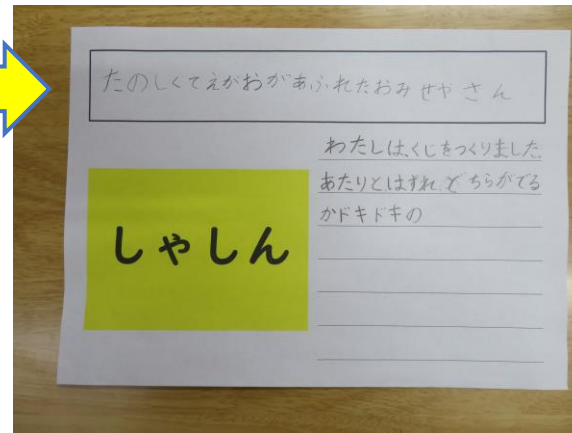 たのしくてえがおがあふれたおみせやさん
わたしは、くじをつくりました。
あたりとはずれ、どちらがでる
かドキドキの
しゃしん